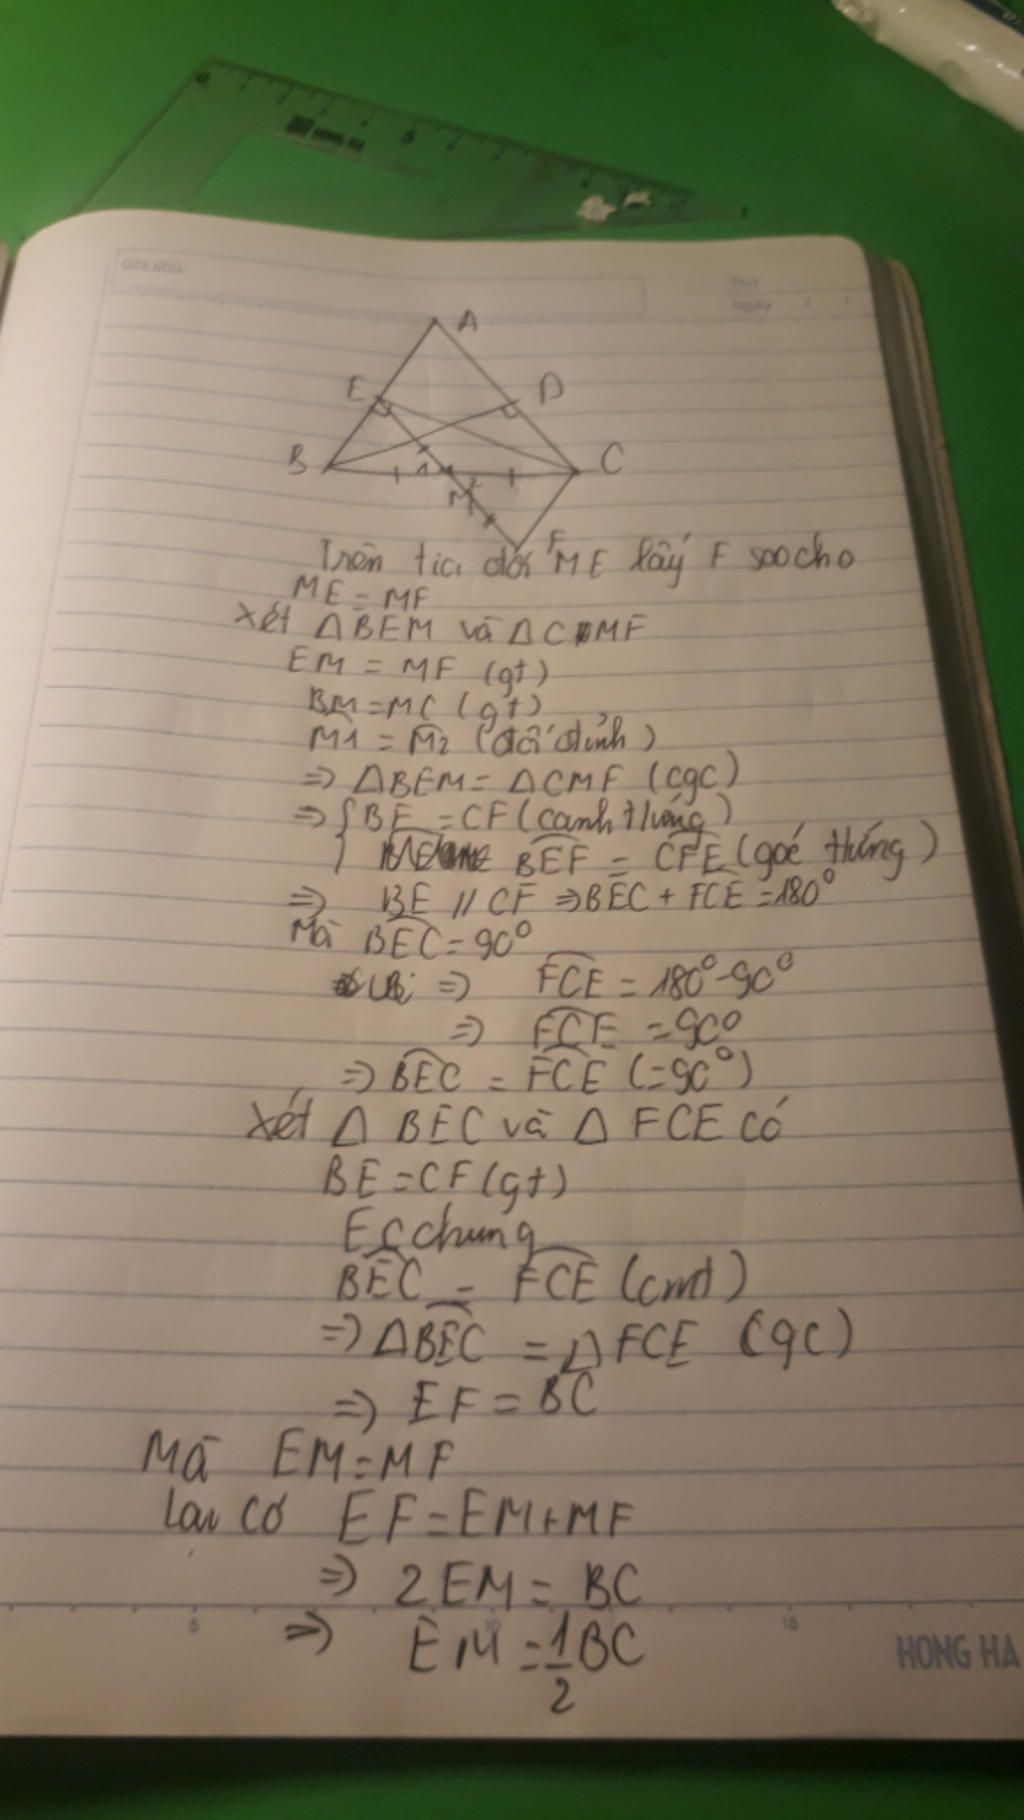 HONG HA
Ghi chú:
Thứ
Ngày / /
A
E
D
B
C
1
2
M
F
Trên tia đối ME lấy F saocho
ME = MF
Xét ΔBEM và ΔCMF
EM = MF (gt)
BM = MC (gt)
M1 = M2 (đối đỉnh)
=> ΔBEM = ΔCMF (cgc)
=> { BE = CF (canh tướng)
BEF = CFE (goć tướng)
=> BE // CF => BEC + FCE = 180°
Mà BEC = 90°
=> FCE = 180° - 90°
=> FCE = 90°
=> BEC = FCE (=90°)
Xét Δ BEC và Δ FCE có
BE = CF (gt)
EC chung
BEC = FCE (cmt)
=> ΔBEC = Δ FCE (gc)
=> EF = BC
Mà EM = MF
Lại có EF = EM + MF
=> 2EM = BC
5 10 15
=> EM = 1/2 BC
HONG HA